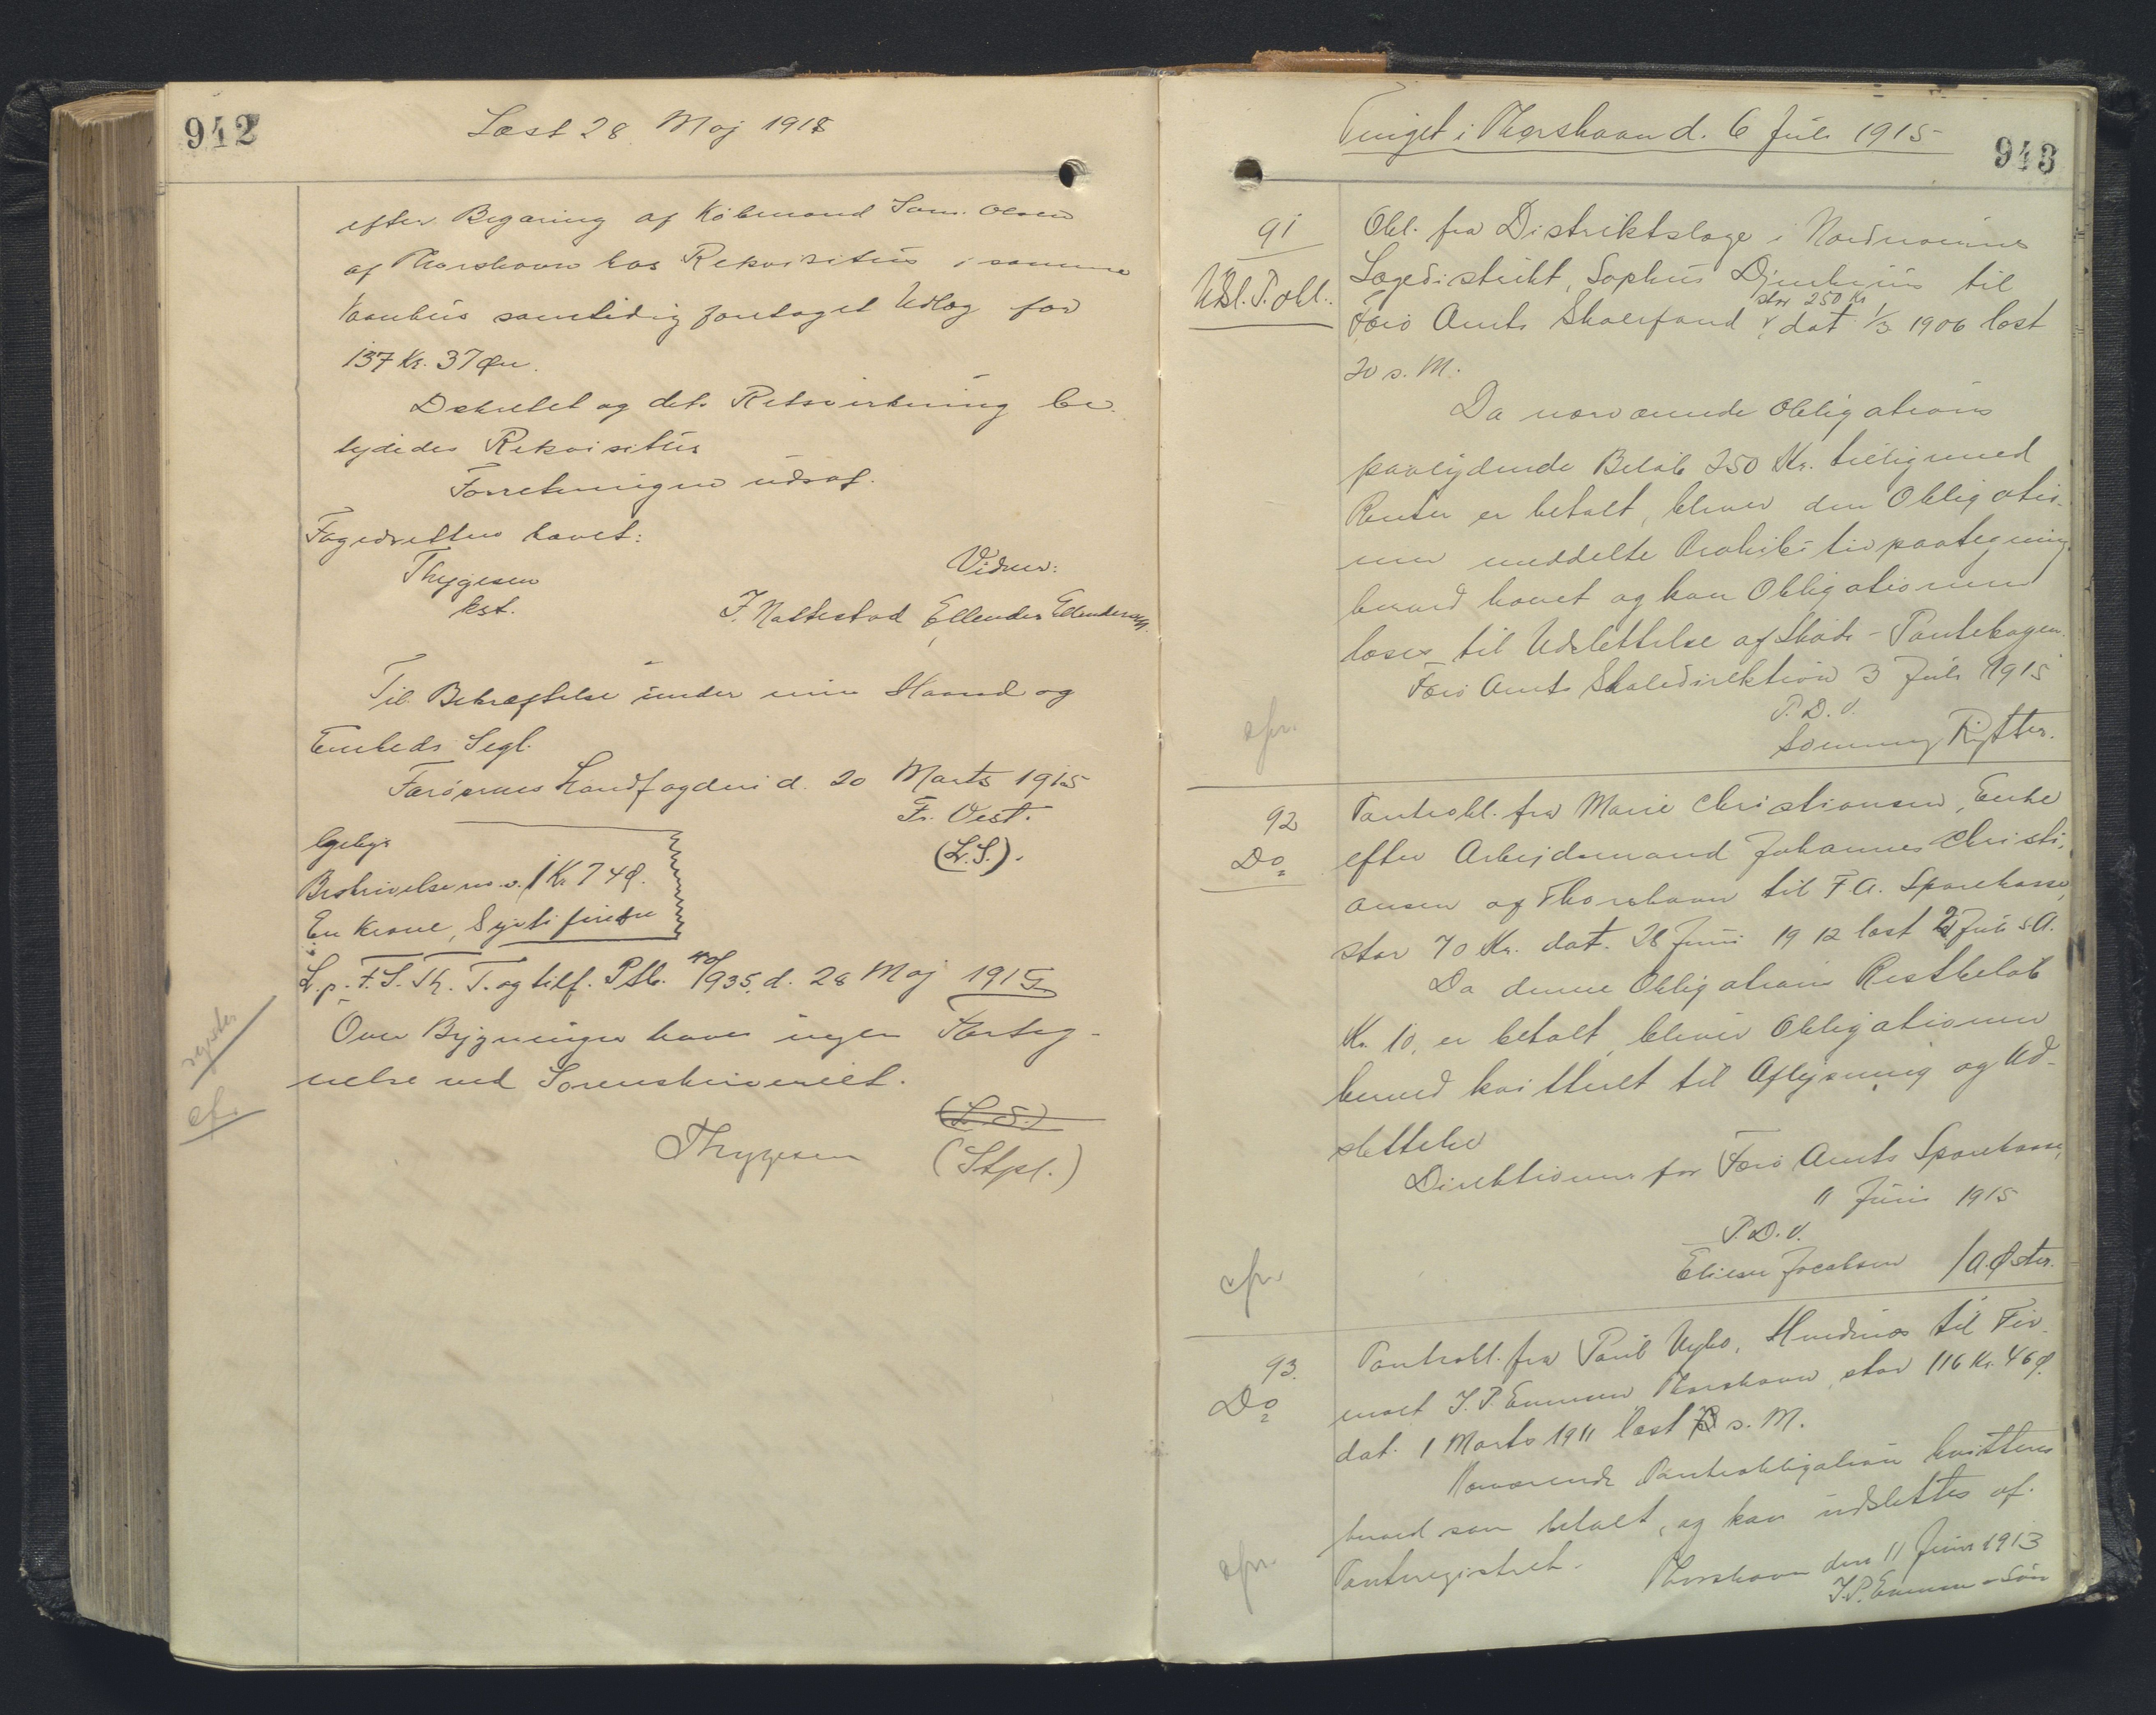 942
Læst 28 Maj 1915
efter Begæring af Købmand Sam. Olsen
af Thorshavn hos Rekvisitus i samme
Vaanhus samtidig foretaget Udlæg for
137 Kr. 37 Øre.
Dekretet og dets Retsvirkning be-
tydedes Rekvisitus
Forretningen udsat.
Fogedretten hævet:
Thygesen
kst.
Vidner:
J. Nattestad Ellendes Ellendersen.
Til Bekræftelse under min Haand og
Embeds Segl.
Færøernes Landfogderi d. 20 Marts 1915
Fr. Vest.
(L.S.).
Gebyr
Beskrivelse m.v. 1 Kr 74 Ø.
En Krone, Syvti fire Øre
L. p. F. S. Th. T. og tilf. Ptb. 935, d. 28 Maj 1915
Over Bygningen haves ingen Forteg-
nelse ved Sorenskriveriet.
(L.S.)
Thygesen (Stpl.)
register
cf.
943
Tinget i Thorshavn d. 6 Juli 1915
91
Udsl. P. obl.
Obl. fra Distriktslæge i Norderøernes
Lægedistrikt, Sophus Djurhuus til
Færø Amts Skolefond stor 250 Kr, dat 1/3 1906 læst
20 s. M.
Da nærværende Obligations
paalydende Beløb 250 Kr. tilligemed
Renter er betalt, bliver den Obligatio-
nen meddelte Prohibitivpaategning
herved hævet og kan Obligationen
læses til Udslettelse af Skøde- Pantebogen.
Færø Amts Skoledirektion 3 Juli 1915
P.D.V.
Sommery Rytter.
afsr.
92
Do
Panteobl. fra Marie Christiansen, Enke
efter Arbejdsmand Johannes Christi-
ansen af Thorshavn til F.A. Sparekasse,
stor 70 Kr. dat. 28 Juni 1912 læst 2 Juli s.A.
Da denne Obligations Restbeløb
Kr. 10, er betalt, bliver Obligationen
herved kvitteret til Aflysning og Ud-
slettelse
Direktionen for Færø Amts Sparekasse,
11 Juni 1915
P.D.V.
Eliesen Jacobsen /A. Øster.
afsr.
93.
Do
Panteobl. fra Poul Nybo, Hvidenæs til Fir-
maet J. P. Emmen Thorshavn, stor 116 Kr. 46 Ø.
dat. 1 Marts 1911 læst s. M.
Nærværende Panteobligation kvitteres
herved som betalt, og kan udslettes af
Panteregistret. Thorshavn den 11 Juni 1913
J. P. Emmen & Søn
afsr.